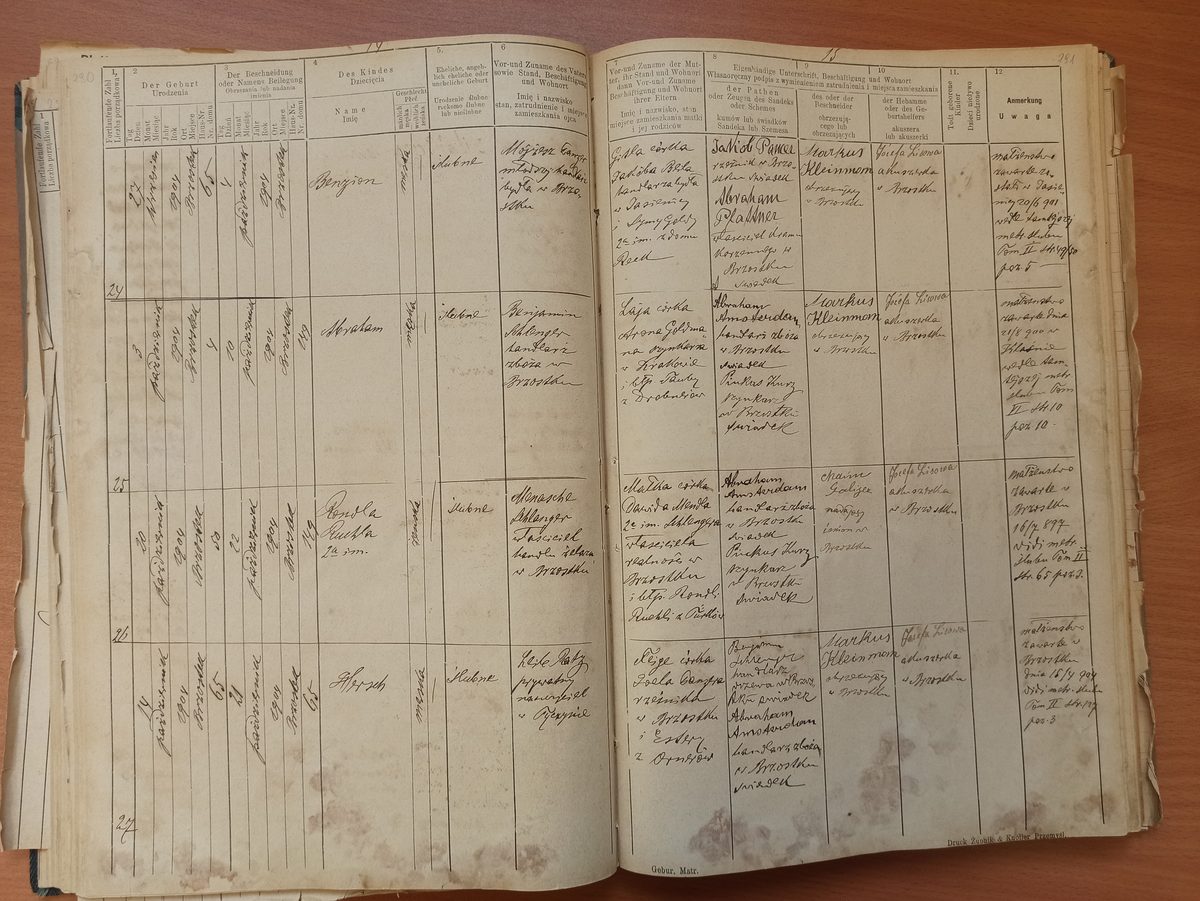 14
290
1
Fortlaufende Zahl
Liczba porządkowa
2
Der Geburt
Urodzenia
Tag
Dzień
Monat
Miesiąc
Jahr
Rok
Ort
Miejsce
Haus-Nr.
Nr. domu
3
Der Beschneidung
oder Namens Beilegung
Obrzezania lub nadania
imienia
Tag
Dzień
Monat
Miesiąc
Jahr
Rok
Ort
Miejsce
Haus-Nr.
Nr. domu
4
Des Kindes
Dziecięcia
Name
Imię
Geschlecht
Płeć
männlich
męska
weiblich
żeńska
5.
Eheliche, angeb-
lich eheliche oder
uneheliche Geburt
Urodzenie ślubne
rzekomo ślubne
lub nieślubne
6
Vor-und Zuname des Vaters
sowie Stand, Beschäftigung
und Wohnort
Imię i nazwisko
stan, zatrudnienie i miejsce
zamieszkania ojca
24
27
września
1904
Brzostek
65
4
października
1904
Brzostek
Benzion
męska
ślubne
Mojżesz Sanger
młodszy handlarz
bydła w Brzo-
stku
25
3
października
1904
Brzostek
4
10
października
1904
Brzostek
149
Abraham
męska
ślubne
Benjamin
Schlenger
handlarz
zboża w
Brzostku
26
20
października
1904
Brzostek
50
22
października
1904
Brzostek
149
Rendla
Ruchla
2ga im.
ślubne
Menasche
Schlanger
właściciel
handlu żelaza
w Brzostku
27
14
października
1904
Brzostek
65
21
października
1904
Brzostek
65
Hersch
męska
ślubne
Leib Ratz
prywatny
nauczyciel
w
15
291
7
Vor-und Zuname der Mut-
ter, ihr Stand und Wohnort
dann Vor-und Zuname
Beschäftigung und Wohnort
ihrer Eltern
Imię i nazwisko, stan
miejsce zamieszkania matki
i jej rodziców
8
9
10
Eigenhändige Unterschrift, Beschäftigung und Wohnort
Własnoręczny podpis z wymienieniem zatrudnienia i miejsca zamieszkania
der Pathen
oder Zeugen des Sandeks
oder Schemes
kumów lub świadków
Sandeka lub Szemesa
des oder der
Beschneider
obrzezują-
cego lub
obrzezujących
der Hebamme
oder des Ge-
burtshelfers
akuszera
lub akuszerki
11.
Todt geborene
Kinder
Dzieci nieżywo
urodzone
12
Anmerkung
Uwaga
Gitla córka
Jakóba Beila
handlarza bydła
w Jasienicy
i Symy Goldy
2ga im. z domu
Reich
Jakób Pancer
rzeźnik w Brzo-
stku świadek
Abraham
Plattner
właściciel kramu
korzennego w
Brzostku
świadek
Markus
Kleinmom
obrzezujący
w Brzostku
Józefa Lisowa
akuszerka
w Brzostku
małżeństwo
zawarte zo-
stało w Jasie-
nicy 20/6 901
wedle tamtejszej
metr. ślubu
Tom II str. 49/50
poz 5
Łaja córka
Arona Goldma-
na szynkarza
w Krakowie
i błp. Tauby
z Drobnerów
Abraham
Amsterdam
handlarz zboża
w Brzostku
świadek
Pinkas Kurz
szynkarz
w Brzostku
świadek
Markus
Kleinmom
obrzezujący
w Brzostku
Józefa Lisowa
akuszerka
w Brzostku
małżeństwo
zawarte dnia
21/8 900 w
wedle tam-
tejszej metr.
ślubu Tom
II str. 10
poz 10
Małka córka
Dawida Mendla
2ga im. Schlangera
właściciela
realności w
Brzostku
i błp. Rendli
Ruchli z Turków
Abraham
Amsterdam
handlarz zboża
w Brzostku
świadek
Pinkas Kurz
szynkarz
w Brzostku
świadek
Chaim
nadający
imion w
Brzostku
Józefa Lisowa
akuszerka
w Brzostku
małżeństwo
zawarte w
Brzostku
16/7 897
widi metr.
ślubu Tom II
str. 65 poz 3.
Feige córka
Joela Sangera
rzeźnika
w Brzostku
i Estery
z Ornerów
Benjamin
Schlenger
handlarz
drzewa w Brzos-
tku świadek
Abraham
Amsterdam
handlarz zboża
w Brzostku
świadek
Markus
Kleinmom
obrzezujący
w Brzostku
Józefa Lisowa
akuszerka
w Brzostku
małżeństwo
zawarte w
Brzostku
dnia 16/7 904
widi metr. ślubu
Tom II str. 127
poz 3
Gebur. Matr.
Druck Żupnik & Knoller Przemyśl.